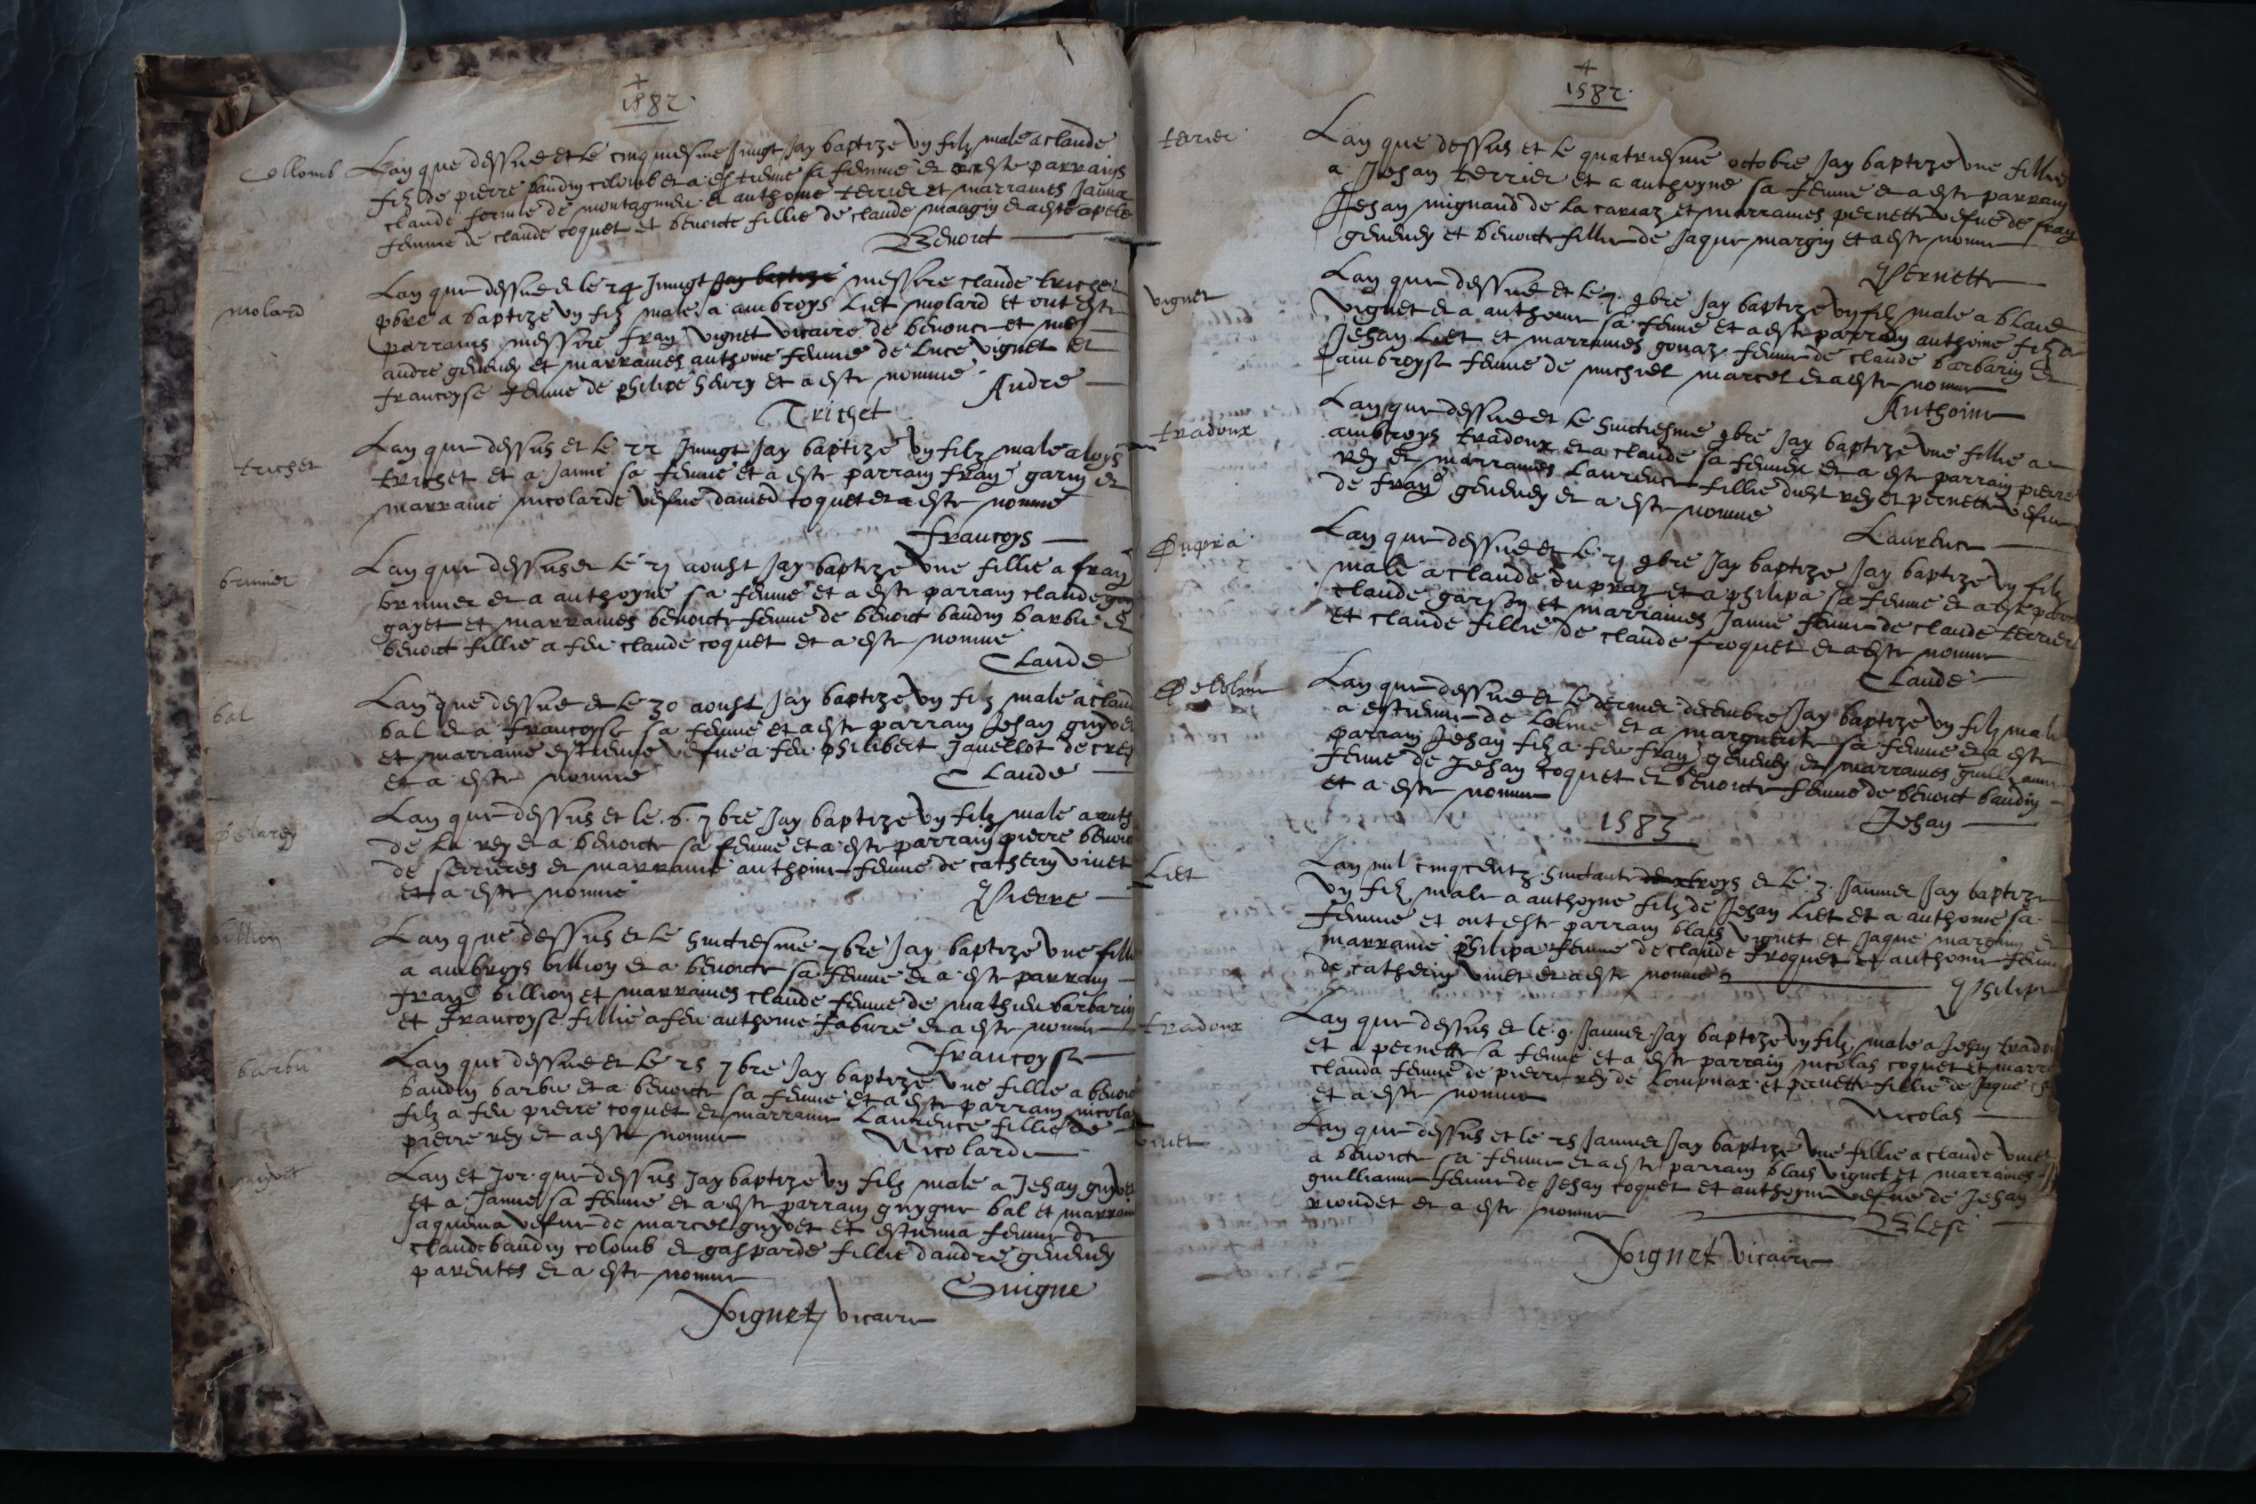 1582
Collomb
Lan que dessus et le cinquiesme Jungt Jay baptize vng filz male a claude
filz de pierre baudin colomb et a estienne sa femme et ont este parrains
claude fermie de montagnieu et anthoine terrier et marraines Janna
femme de claude coquet et benoicte fillie de claude maugin et a este apele
Benoict
molard
Lan que dessus et le 24 Jungt Jay baptize messire claude trichet
pbre a baptize vng filz male a ambroys Liet molard et ont este
parrains messire frans vignet vicaire de benonce et
andre genevey et marraines anthoine femme de Luce vignet et
francoyse femme de philipe henry et a este nomme
Andre
Trichet
trichet
Lan que dessus et le 22 Jungt Jay baptize vng filz male a loys
trichet et a Janne sa femme et a este parrain frans garin et
marraine nicolarde vefue damed coquet et a este nomme
francoys
brunier
Lan que dessus et le 21 aoust Jay baptize vne fillie a frans
brunier et a anthoyne sa femme et a este parrain claude
gayet et marraines benoicte femme de benoict baudin barbu et
benoict fillie a feu claude coquet et a este nomme
Claude
bal
Lan que dessus et le 30 aoust Jay baptize vng filz male a claud
bal et a francoyse sa femme et a este parrain Jehan guyoet
et marraine estienne vefue a feu philibert Janellot de crey
et a este nomme
Claude
Delarey
Lan que dessus et le .6. 7bre Jay baptize vng filz male a anth
de La rey et a benoicte sa femme et a este parrain pierre benoict
de serrieres et marraine anthoine femme de catherin vinet
et a este nomme
Pierre
billion
Lan que dessus et le huictiesme 7bre Jay baptize vne fillie
a ambroys billion et a benoicte sa femme et a este parrain
frans billion et marraines claude femme de mathieu barbarin
et francoyse fillie a feu anthoine fabvre et a este nomme
francoyse
barbu
Lan que dessus et le 25 7bre Jay baptize vne fillie a benoict
baudin barbu et a benoicte sa femme et a este parrain nicolas
filz a feu pierre coquet et marraine Laurence fillie de
pierre rey et a este nomme
Nicolarde
guyoet
Lan et Jor que dessus Jay baptize vng filz male a Jehan guyoet
et a Janne sa femme et a este parrain guygue bal et marraine
Jaquema vefue de marcel guyoet et estienna femme de
claude baudin colomb et gasparde fillie dandre genevey
parentes et a este nomme
Guigue
Vignet vicaire
1582
terrier
Lan que dessus et le quatriesme octobre Jay baptize vne fillie
a Jehan terrier et a anthoyne sa femme et a este parrain
Jehan mignaud de La carraz et marraines pernette vefue de frans
genevey et benoicte fillie de Jaque margin et a este nomme
Pernette
vignet
Lan que dessus et le 7. 9bre Jay baptize vng filz male a blaise
vignet et a anthoine sa femme et a este parrain anthoine filz a
Jehan Liet et marraines gonaz femme de claude barbarin et
ambroyse femme de michiel marcel et a este nomme
Anthoine
tradoux
Lan que dessus et le huictiesme 9bre Jay baptize vne fillie a
ambroys tradoux et a claude sa femme et a este parrain pierre
rey et marraines Laurence fillie dudit rey et pernette vefue
de frans genevey et a este nomme
Laurence
Dupra
Lan que dessus et le 21 9bre Jay baptize Jay baptize vng filz
male a claude du praz et a philipa sa femme et a este parrain
claude garson et marraines Janne femme de claude terrier
et claude fillie de claude froquet et a este nomme
Claude
Delolme
Lan que dessus et le dernier decembre Jay baptize vng filz male
a estienne de Lolme et a marguerite sa femme et a este
parrain Jehan filz a feu frans genevey et marraines guillianne
femme de Jehan coquet et benoicte femme de benoict baudin
et a este nomme
Jehan
1583
Liet
Lan mil cinq centz huictante troys et le .3. Janvier Jay baptize
vng filz male a anthoyne filz de Jehan Liet et a anthoine sa
femme et ont este parrain blais vignet et Jaque margin et
marraine philipa femme de claude froquet et anthoine femme
de catherin vinet et a este nomme
Philipe
tradoux
Lan que dessus et le .9. Janvier Jay baptize vng filz male a Jehan tradoux
et a pernette sa femme et a este parrain nicolas coquet et marr
clauda femme de pierre rey de Lompnax et pernette fillie de Jaque
et a este nomme
Nicolas
vinet
Lan que dessus et le 25 Janvier Jay baptize vne fillie a claude vinet
a benoicte sa femme et a este parrain blais vignet et marraines
guillianne femme de Jehan coquet et anthoyne vefue de Jehan
riondet et a este nomme
Blese
Vignet vicaire